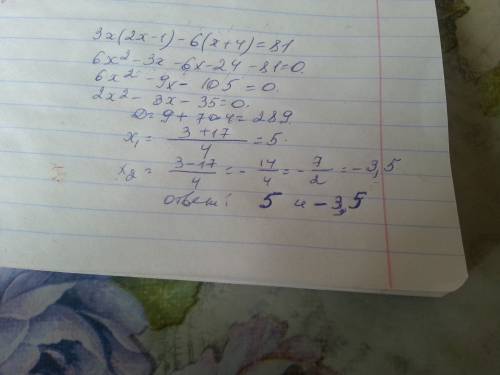 3x(2x-1)-6(x+4)=81
6x²-3x-6x-24-81=0.
6x²-9x-105=0.
2x²-3x-35=0.
D=9+70·4=289
x₁=(3+17)/4=5.
x₂=(3-17)/4=-14/4=-7/2=-3,5
ответ: 5 и -3,5